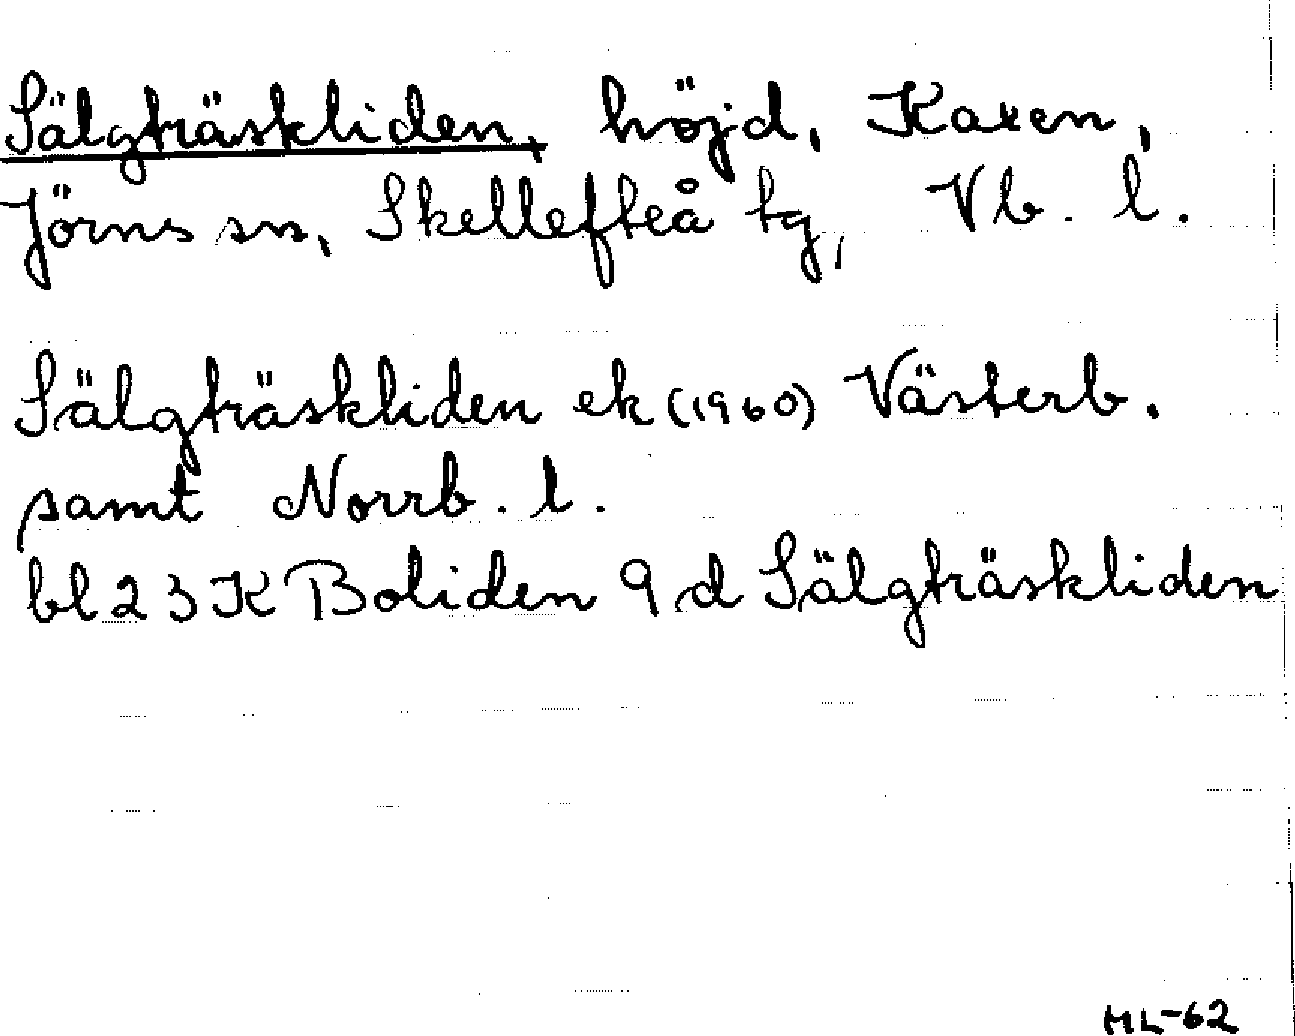 Sälgträskliden, höjd, Kaxen,
Jörns sn, Skellefteå tg, Vb. l.
Sälgträskliden ek (1960) Västerb.
samt Norrb. l.
bl 23 K Boliden 9 d Sälgträskliden
HL-62